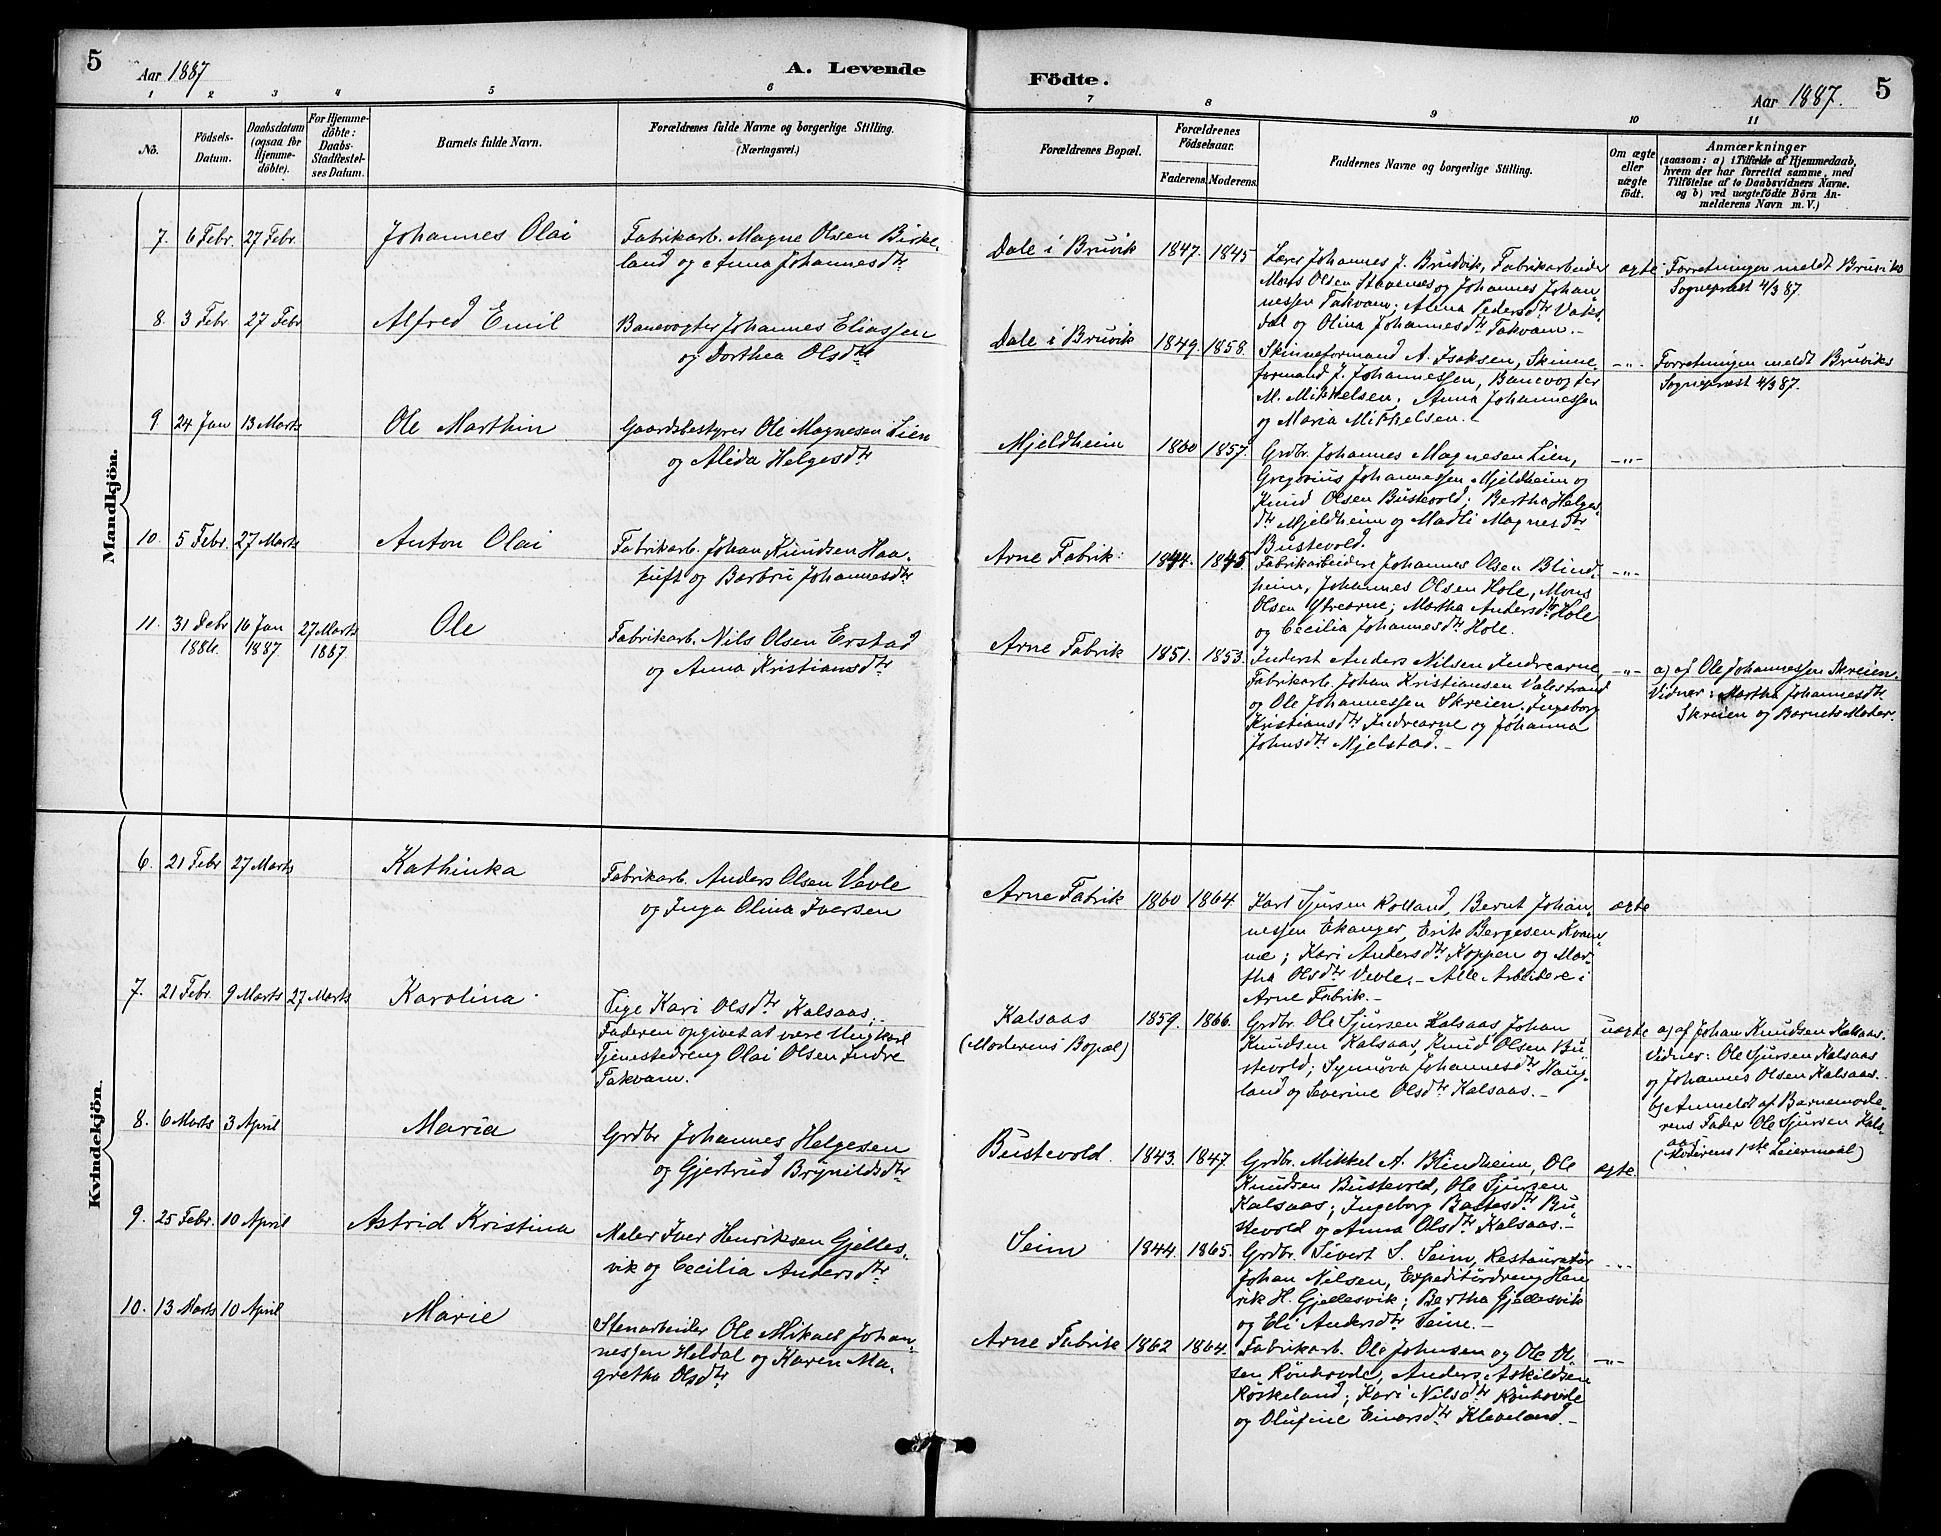 5
Aar 1887
A. Levende
Födte.
Aar 1887.
5
1
2
3
4
5
6
7
8
9
10
11
No.
Födsels-
Datum.
Daabsdatum
(ogsaa for
Hjemme-
döbte).
For Hjemme-
döbte:
Daabs-
Stadfæstel-
ses Datum.
Barnets fulde Navn.
Forældrenes fulde Navne og borgerlige Stilling.
(Næringsvei.)
Forældrenes Bopæl.
Forældrenes
Födselsaar.
Faderens.
Moderens.
Faddernes Navne og borgerlige Stilling.
Om ægte
eller
uægte
födt.
Anmærkninger
(saasom: a) i Tilfælde af Hjemmedaab,
hvem der har forrettet samme, med
Tilföielse af to Daabsvidners Navne.
og b) ved uægtefödte Börn An-
melderens Navn m. V.)
Mandkjön.
7. 6 Febr. 27 Febr. Johannes Olai
Fabrikarb. Magne Olsen Birke-
land og Anna Johannesdtr
Dale i Bruvik 1847. 1845
Lærer Johannes J. Brudvik, Fabrikarbeider
Mons Olsen Stavenes og Johannes Johan
nessen Takvam; Anna Pedersdtr Vaks-
dal og Olina Johannesdtr Takvam.-
ægte
Forretningen meldt Bruviks
Sognepræst 4/3 87.
8. 3 Febr 27 Febr Alfred Emil
Banevogter Johannes Eliassen
og Dorthea Olsdtr
Dale i Bruvik 1849. 1858.
Skinneformand A. Isaksen, Skinne-
formand J. Johannessen, Banevogter
M. Mikkelsen; Anna Johannessen
og Maria Mikkelsen.-
-"-
Forretningen meldt Bruviks
Sognepræst 4/3 87.
9. 24 Jan 13 Marts Ole Marthin
Gaardsbestyrer Ole Magnesen Lien
og Alida Helgesdtr
Mjeldheim 1860 1857.
Grdbr. Johannes Magnesen Lien,
Gregorius Johannessen Mjeldheim og
Knud Olsen Bustevold; Bertha Helges-
dtr Mjeldheim og Madli Magnesdtr
Bustevold.
-"-
10. 5 Febr. 27 Marts Anton Olai
Fabrikarb. Johan Knudsen Haa-
tuft og Barbru Johannesdtr
Arne Fabrik. 1844. 1845.
Fabrikarbeidere Johannes Olsen Blind-
heim, Johannes Olsen Hole, Mons
Olsen Ytrearne; Martha Andersdtr Hole
og Cecilia Johannesdtr Hole.
-"-
11. 31 Debr 1886. 16 Jan 1887. 27 Marts 1887. Ole
Fabrikarb. Nils Olsen Erstad
og Anna Kristiansdtr
Arne Fabrik 1851. 1853.
Inderst Anders Nilsen Indrearne,
Fabrikarb. Johan Kristiansen Valestrand
og Ole Johannessen Skreien. Ingeborg
Kristiansdtr Indrearne og Johanna
Johnsdtr Mjelstad.-
-"-
a) af Ole Johannessen Skreien.
Vidner: Martha Johannesdtr
Skreien og Barnets Moder.
Kvindekjön.
6. 21 Febr 27 Marts Kathinka
Fabrikarb. Anders Olsen Vevle
og Inga Olina Iversen
Arne Fabrik 1860 1864.
Karl Sjursen Rolland, Bernt Johan-
nessen Ekanger, Erik Bergesen Kvam-
me; Kari Andersdtr Koppen og Mar-
tha Olsdtr Vevle.- Alle Arbeidere i
Arne Fabrik.-
ægte
7. 21 Febr. 9 Marts 27 Marts Karolina
Pige Kari Olsdtr Kalsaas.-
Faderen opgivet at være Ungkarl
Tjenestedreng Olai Olsen Indre
Takvam.
Kalsaas
(Moderens Bopæl)
1859. 1866.
Grdbr. Ole Sjursen Kalsaas, Johan
Knudsen Kalsaas, Knud Olsen Bu-
stevold; Synnöva Johannesdtr Haug-
land og Severine Olsdtr Kalsaas.-
uægte
a) af Johan Knudsen Kalsaas.
Vidner: Ole Sjursen Kalsaas
og Johannes Olsen Kalsaas.
b) Anmeldt af Barnemode-
rens Fader Ole Sjursen Kals-
aas.
(Moderens 1ste Leiermaal)
8. 6 Marts 3 April Maria
Grdbr Johannes Helgesen
og Gjertrud Brynildsdtr
Bustevold. 1843. 1847.
Grdbr. Mikkel A. Blindheim, Ole
Knudsen Bustevold, Ole Sjursen
Kalsaas; Ingeborg Baltasdtr Bu-
stevold og Anna Olsdtr Kalsaas.-
ægte
9. 25 Febr. 10 April Astrid Kristina
Maler Iver Henriksen Gjelles-
vik og Cecilia Andersdtr
Seim 1844. 1865.
Grdbr. Sivert S. Seim, Restauratör
Johan Nilsen, Expeditördreng Hen-
rik H. Gjellesvik; Bertha Gjellesvik
og Eli Andersdtr Seim.-
-"-
10. 13 Marts 10 April Marie
Stenarbeider Ole Mikael Johan-
nessen Heldal og Karen Ma-
gretha Olsdtr
Arne Fabrik 1862 1864.
Fabrikarb. Ole Johnsen og Ole Ol-
sen Rönhovde, Anders Askildsen
Röskeland; Kari Nilsdtr Rönhovde
og Olufine Einarsdtr Kleveland.-
-"-